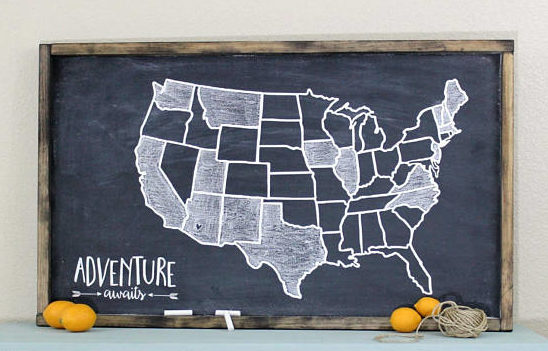 ADVENTURE
awaits